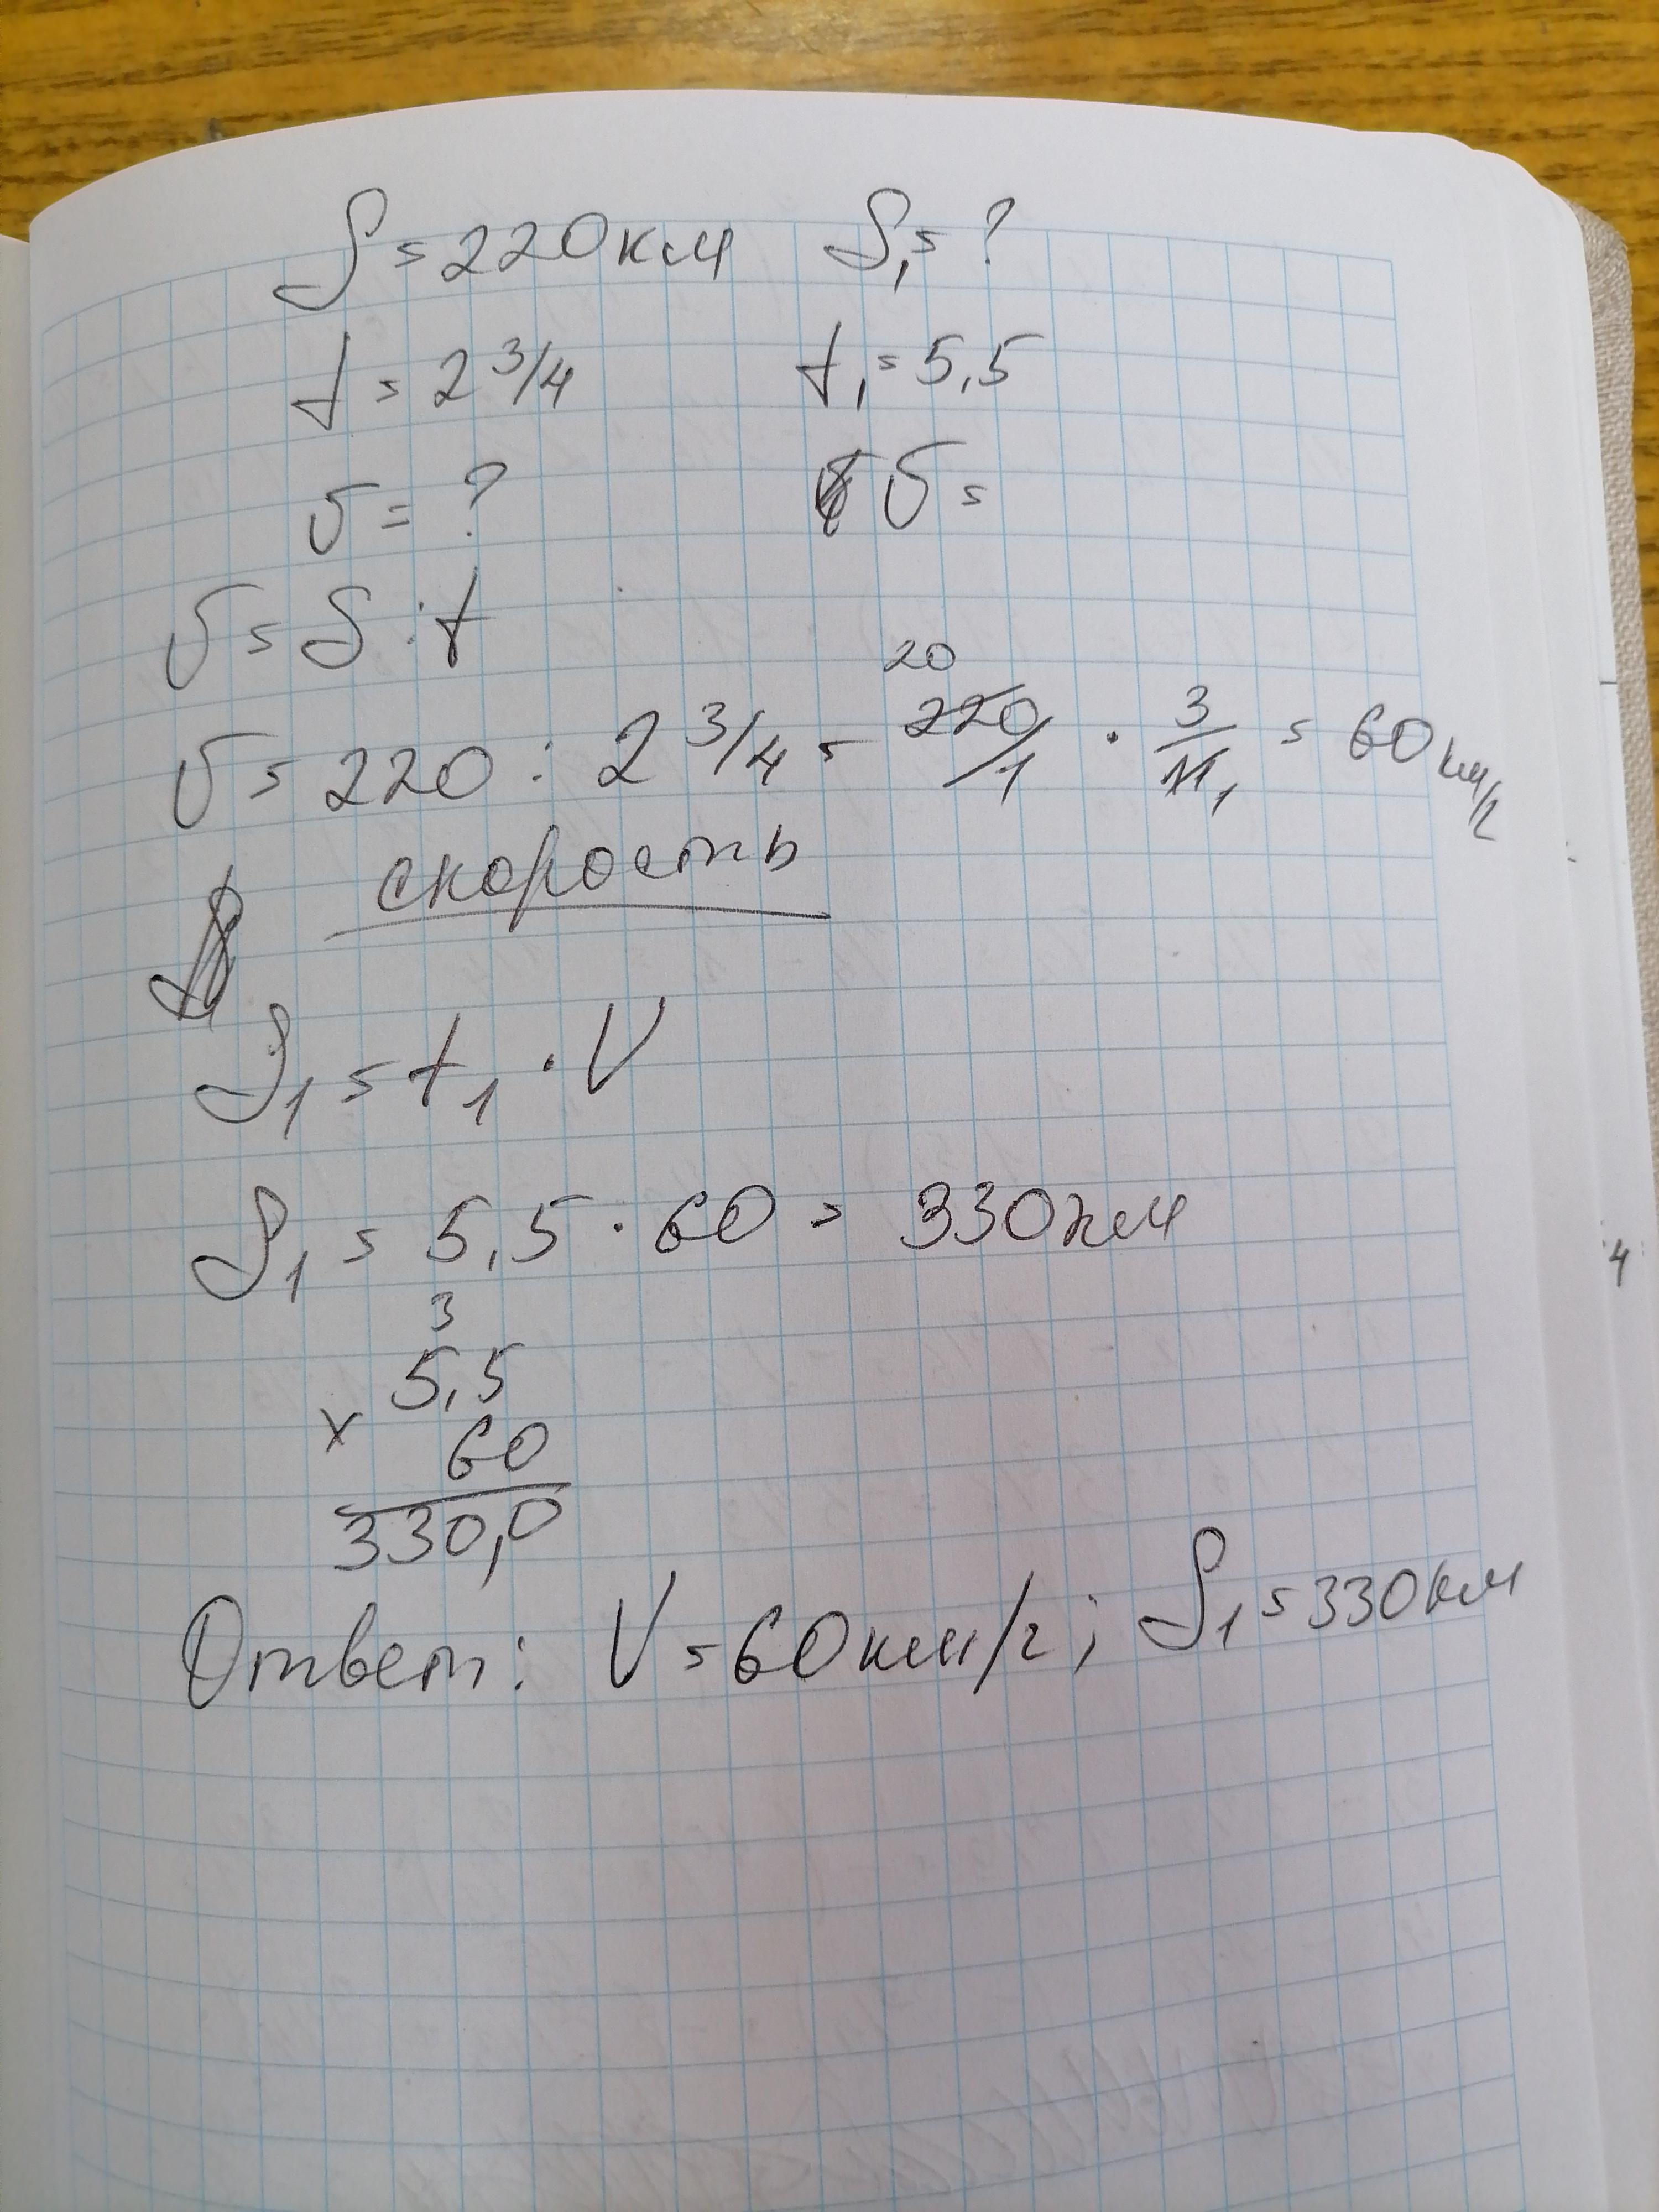 S = 220км S₁ = ?
t = 2 3/4 t₁ = 5,5
v = ? v =
v = S : t
20
v = 220 : 2 3/4 = 220/1 · 3/11 1 = 60км/г
скорость
S₁ = t₁ · V
S₁ = 5,5 · 60 = 330км
3
5,5
× 60
330,0
Ответ: V = 60км/г; S₁ = 330км
4